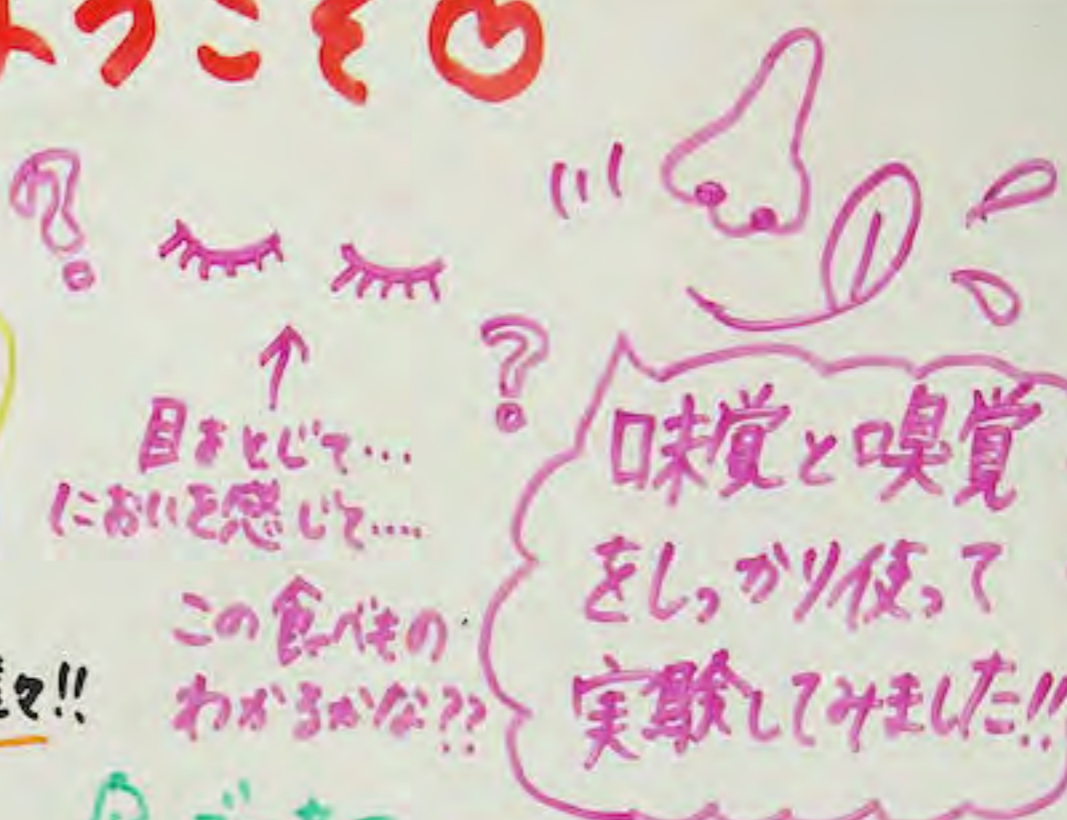 ようこそ
目をとじて…
においを感じて….
この食べもの
わかるかな??
味覚と嗅覚
をしっかり使って
実験してみました!!
々!!